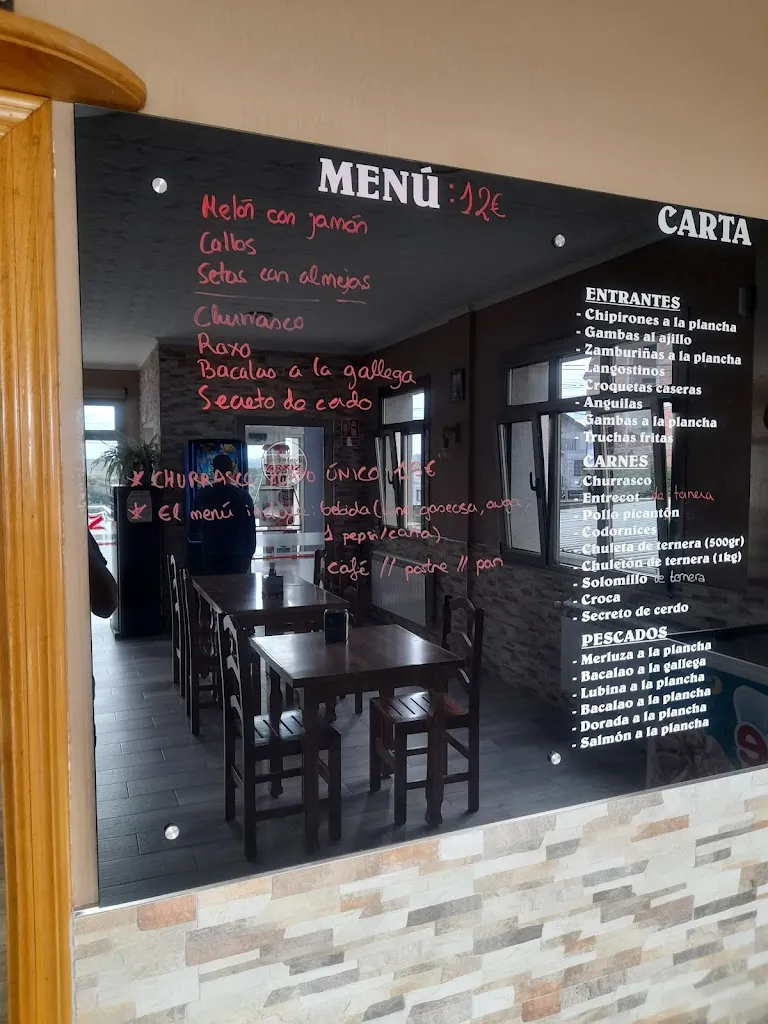 MENÚ : 12€
Melón con jamón
Callos
Setas con almejas
Churrasco
Raxo
Bacalao a la gallega
Secreto de cerdo
* CHURRASCO ÚNICO
* El menú : bebida ( gaseosa, auga,
1 pepsi/caña)
café // postre // pan
CARTA
ENTRANTES
- Chipirones a la plancha
- Gambas al ajillo
- Zamburiñas a la plancha
Langostinos
Croquetas caseras
- Anguilas
Gambas a la plancha
- Truchas fritas
CARNES
- Churrasco
- Entrecot de ternera
- Pollo picantón
- Codornices
- Chuleta de ternera (500gr)
- Chuletón de ternera (1kg)
- Solomillo de ternera
- Croca
- Secreto de cerdo
PESCADOS
- Merluza a la plancha
- Bacalao a la gallega
- Lubina a la plancha
- Bacalao a la plancha
- Dorada a la plancha
- Salmón a la plancha